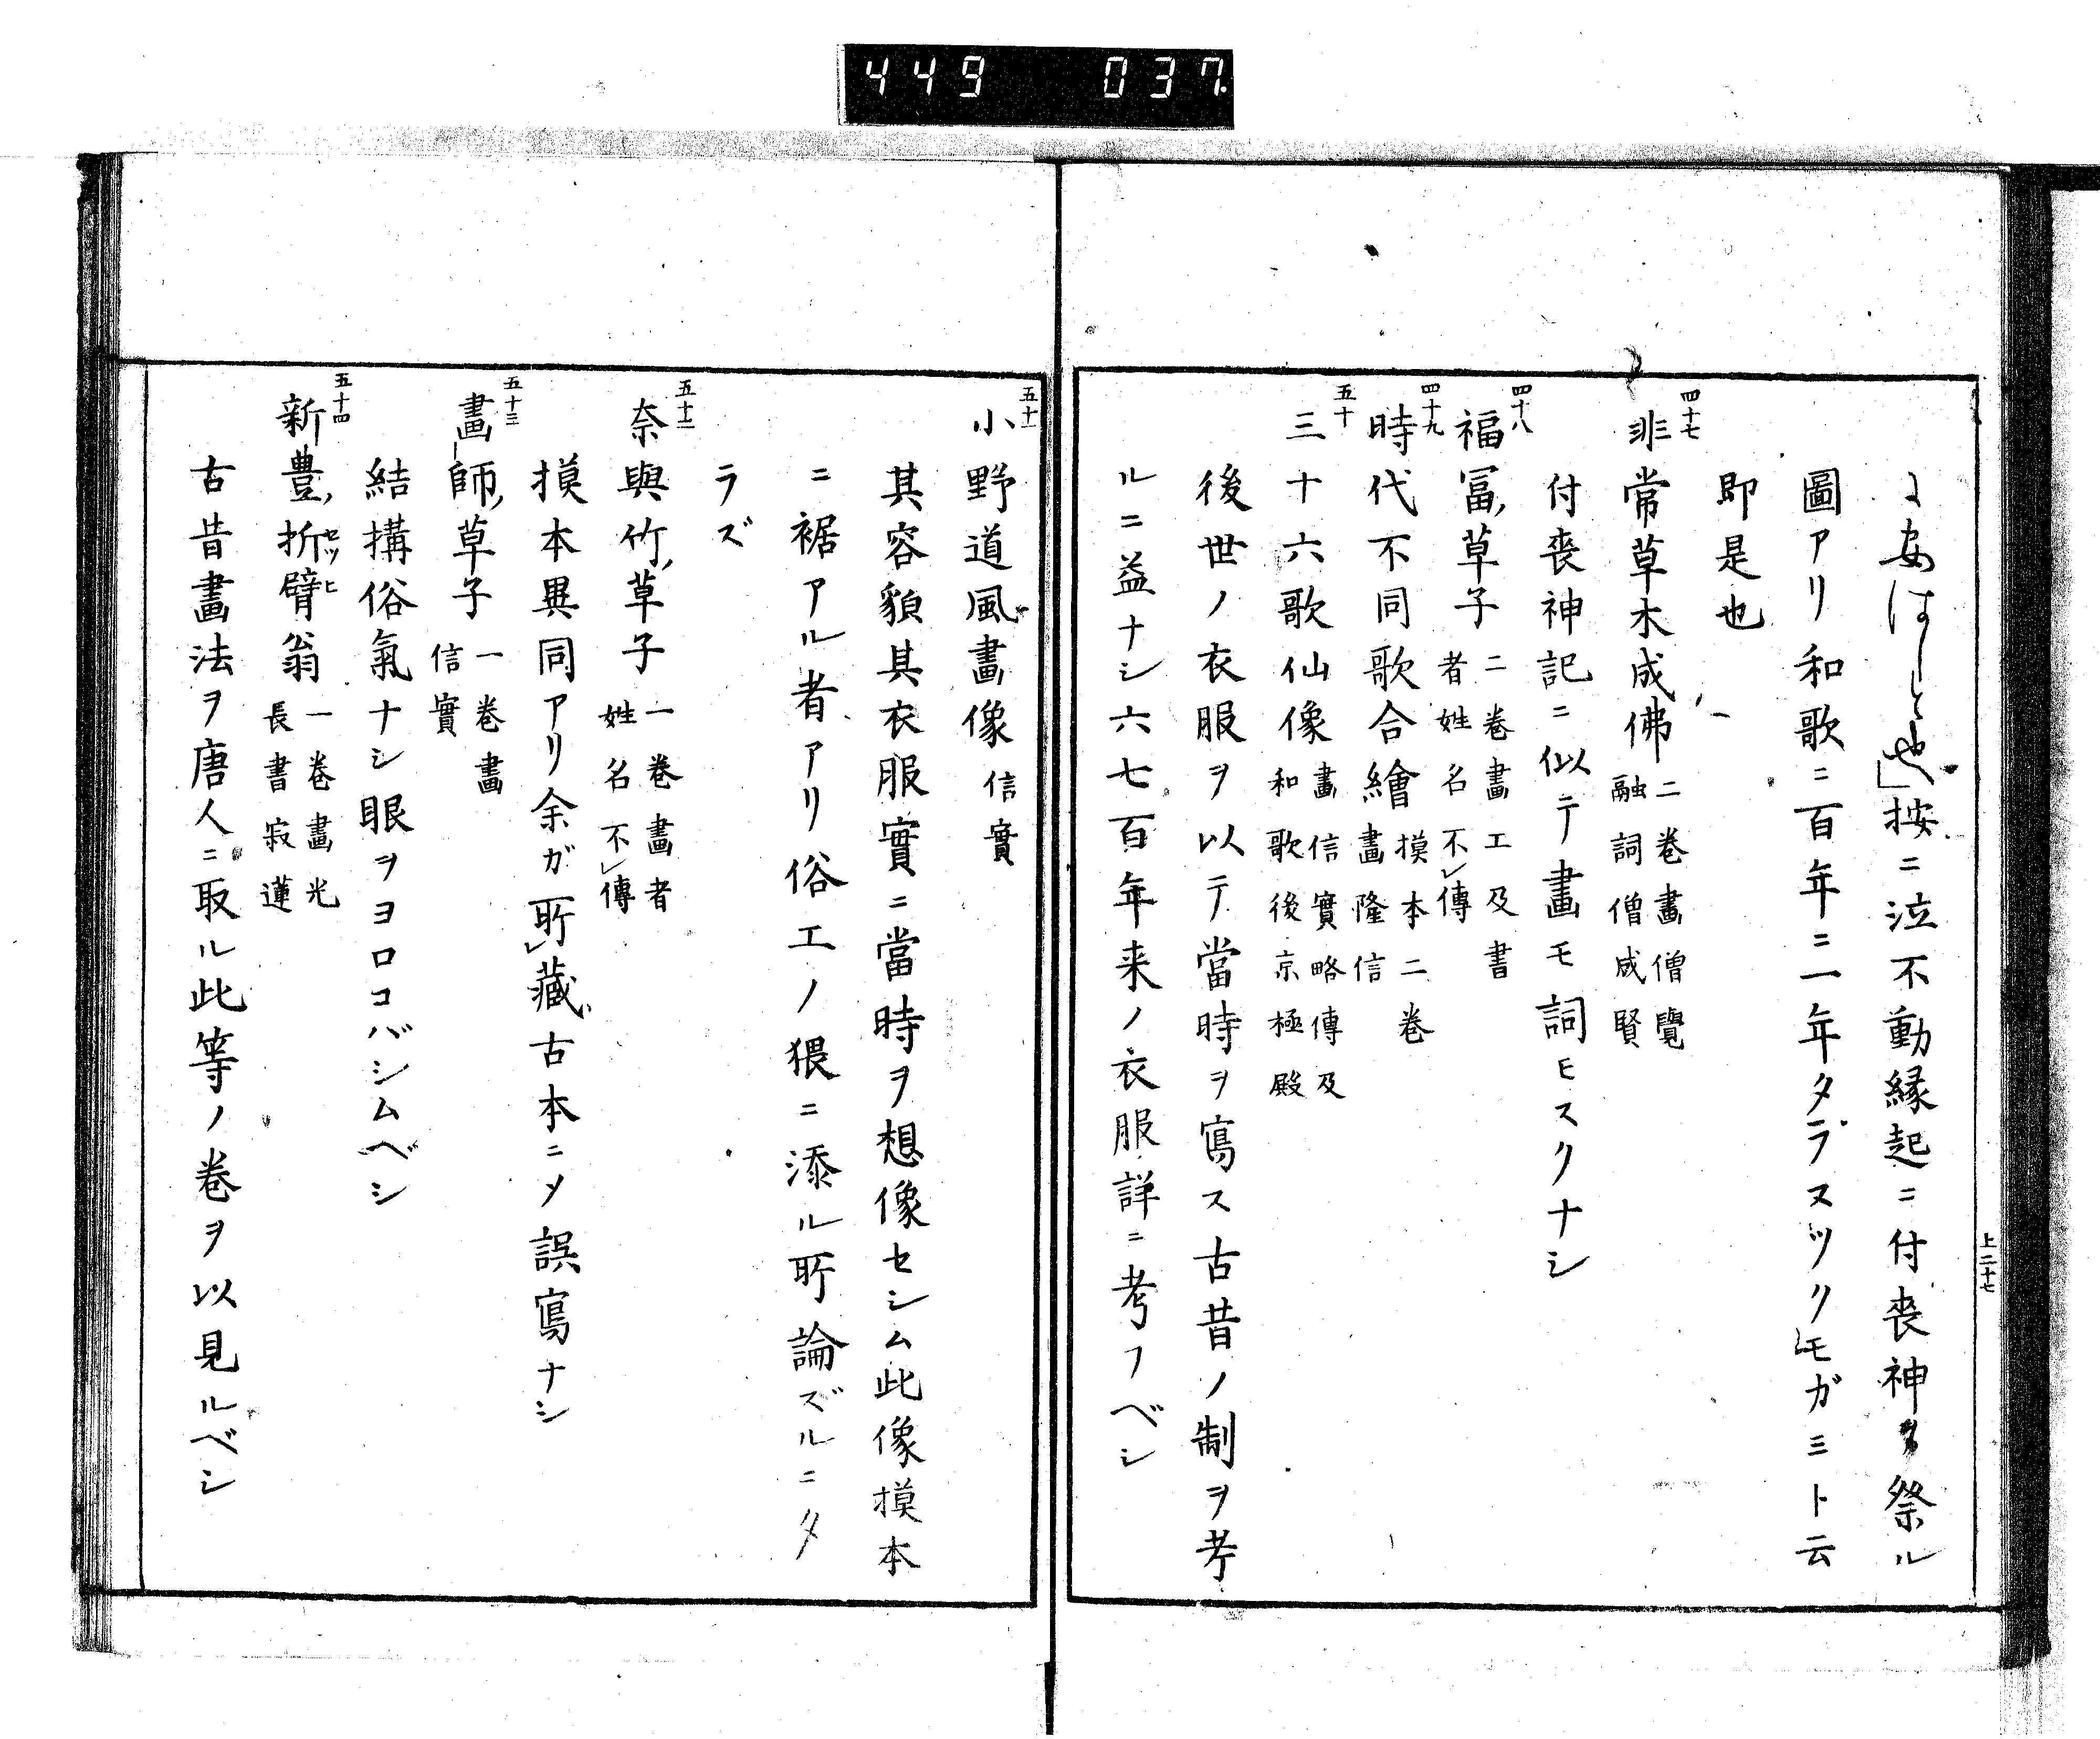 449 037
上二十七
ミ安はしと也」按ニ泣不動縁起ニ付喪神ヲ祭ル
圖アリ和歌ニ百年ニ一年タラヌツクモガミト云
即是也
四十七
非常草木成佛 二卷畫僧覺
融詞僧成賢
付喪神記ニ似テ畫モ詞モスクナシ
四十八
福冨草子 二卷畫工及書
者姓名不傳
四十九
時代不同歌合繪 摸本二卷
畫隆信
五十
三十六歌仙像 畫信實略傳及
和歌後京極殿
後世ノ衣服ヲ以テ當時ヲ寫ス古昔ノ制ヲ考
ルニ益ナシ六七百年来ノ衣服詳ニ考フベシ
五十一
小野道風畫像 信實
其容貌其衣服實ニ當時ヲ想像セシム此像摸本
ニ裾アル者アリ俗工ノ猥ニ添ル所論ズルニタ
ラズ
五十二
奈與竹草子 一卷畫者
姓名不傳
摸本異同アリ余ガ所藏古本ニメ誤寫ナシ
五十三
畫師草子 一卷畫
信實
結搆俗氣ナシ眼ヲヨロコバシムベシ
五十四
新豊折臂翁 一卷畫光
長書寂蓮
セツヒ
古昔畫法ヲ唐人ニ取ル此等ノ卷ヲ以見ルベシ